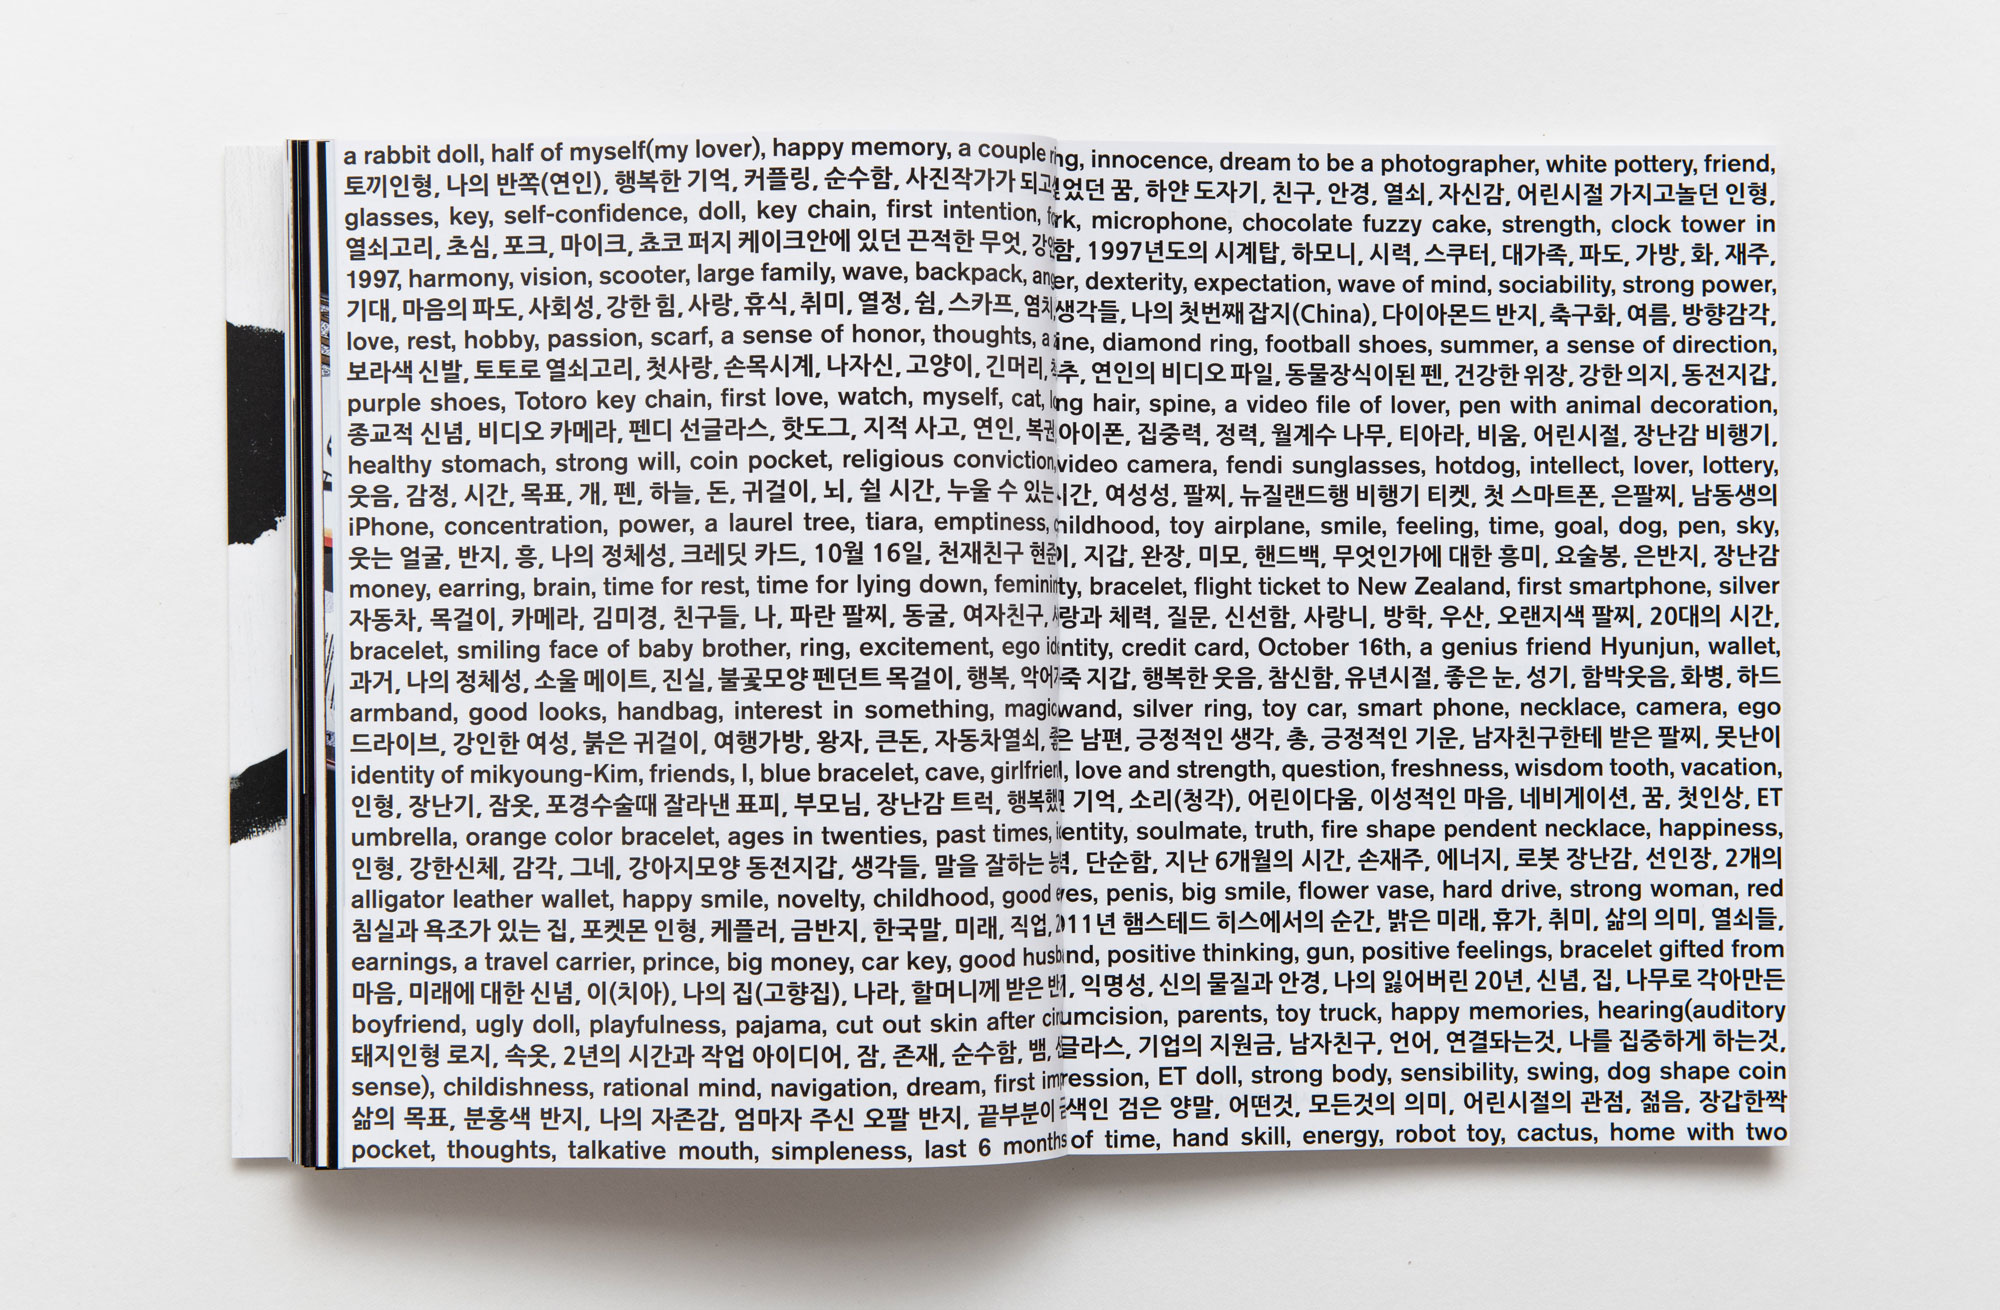 a rabbit doll, half of myself(my lover), happy memory, a couple ring, innocence, dream to be a photographer, white pottery, friend,
토끼인형, 나의 반쪽(연인), 행복한 기억, 커플링, 순수함, 사진작가가 되고싶었던 꿈, 하얀 도자기, 친구, 안경, 열쇠, 자신감, 어린시절 가지고놀던 인형,
glasses, key, self-confidence, doll, key chain, first intention, fork, microphone, chocolate fuzzy cake, strength, clock tower in
열쇠고리, 초심, 포크, 마이크, 쵸코 퍼지 케이크안에 있던 끈적한 무엇, 강인함, 1997년도의 시계탑, 하모니, 시력, 스쿠터, 대가족, 파도, 가방, 화, 재주,
1997, harmony, vision, scooter, large family, wave, backpack, anger, dexterity, expectation, wave of mind, sociability, strong power,
기대, 마음의 파도, 사회성, 강한 힘, 사랑, 휴식, 취미, 열정, 쉼, 스카프, 염치, 생각들, 나의 첫번째 잡지(China), 다이아몬드 반지, 축구화, 여름, 방향감각,
love, rest, hobby, passion, scarf, a sense of honor, thoughts, a zine, diamond ring, football shoes, summer, a sense of direction,
보라색 신발, 토토로 열쇠고리, 첫사랑, 손목시계, 나자신, 고양이, 긴머리, 척추, 연인의 비디오 파일, 동물장식이된 펜, 건강한 위장, 강한 의지, 동전지갑,
purple shoes, Totoro key chain, first love, watch, myself, cat, long hair, spine, a video file of lover, pen with animal decoration,
종교적 신념, 비디오 카메라, 펜디 선글라스, 핫도그, 지적 사고, 연인, 복권, 아이폰, 집중력, 정력, 월계수 나무, 티아라, 비움, 어린시절, 장난감 비행기,
healthy stomach, strong will, coin pocket, religious conviction, video camera, fendi sunglasses, hotdog, intellect, lover, lottery,
웃음, 감정, 시간, 목표, 개, 펜, 하늘, 돈, 귀걸이, 뇌, 쉴 시간, 누울 수 있는 시간, 여성성, 팔찌, 뉴질랜드행 비행기 티켓, 첫 스마트폰, 은팔찌, 남동생의
iPhone, concentration, power, a laurel tree, tiara, emptiness, childhood, toy airplane, smile, feeling, time, goal, dog, pen, sky,
웃는 얼굴, 반지, 흥, 나의 정체성, 크레딧 카드, 10월 16일, 천재친구 현준이, 지갑, 완장, 미모, 핸드백, 무엇인가에 대한 흥미, 요술봉, 은반지, 장난감
money, earring, brain, time for rest, time for lying down, femininity, bracelet, flight ticket to New Zealand, first smartphone, silver
자동차, 목걸이, 카메라, 김미경, 친구들, 나, 파란 팔찌, 동굴, 여자친구, 사랑과 체력, 질문, 신선함, 사랑니, 방학, 우산, 오랜지색 팔찌, 20대의 시간,
bracelet, smiling face of baby brother, ring, excitement, ego identity, credit card, October 16th, a genius friend Hyunjun, wallet,
과거, 나의 정체성, 소울 메이트, 진실, 불꽃모양 펜던트 목걸이, 행복, 악어가죽 지갑, 행복한 웃음, 참신함, 유년시절, 좋은 눈, 성기, 함박웃음, 화병, 하드
armband, good looks, handbag, interest in something, magic wand, silver ring, toy car, smart phone, necklace, camera, ego
드라이브, 강인한 여성, 붉은 귀걸이, 여행가방, 왕자, 큰돈, 자동차열쇠, 좋은 남편, 긍정적인 생각, 총, 긍정적인 기운, 남자친구한테 받은 팔찌, 못난이
identity of mikyoung-Kim, friends, I, blue bracelet, cave, girlfriend, love and strength, question, freshness, wisdom tooth, vacation,
인형, 장난기, 잠옷, 포경수술때 잘라낸 표피, 부모님, 장난감 트럭, 행복했던 기억, 소리(청각), 어린이다움, 이성적인 마음, 네비게이션, 꿈, 첫인상, ET
umbrella, orange color bracelet, ages in twenties, past times, identity, soulmate, truth, fire shape pendent necklace, happiness,
인형, 강한신체, 감각, 그네, 강아지모양 동전지갑, 생각들, 말을 잘하는 능력, 단순함, 지난 6개월의 시간, 손재주, 에너지, 로봇 장난감, 선인장, 2개의
alligator leather wallet, happy smile, novelty, childhood, good eyes, penis, big smile, flower vase, hard drive, strong woman, red
침실과 욕조가 있는 집, 포켓몬 인형, 케플러, 금반지, 한국말, 미래, 직업, 2011년 햄스테드 히스에서의 순간, 밝은 미래, 휴가, 취미, 삶의 의미, 열쇠들,
earnings, a travel carrier, prince, big money, car key, good husband, positive thinking, gun, positive feelings, bracelet gifted from
마음, 미래에 대한 신념, 이(치아), 나의 집(고향집), 나라, 할머니께 받은 반지, 익명성, 신의 물질과 안경, 나의 잃어버린 20년, 신념, 집, 나무로 각아만든
boyfriend, ugly doll, playfulness, pajama, cut out skin after circumcision, parents, toy truck, happy memories, hearing(auditory
돼지인형 로지, 속옷, 2년의 시간과 작업 아이디어, 잠, 존재, 순수함, 뱀, 선글라스, 기업의 지원금, 남자친구, 언어, 연결돠는것, 나를 집중하게 하는것,
sense), childishness, rational mind, navigation, dream, first impression, ET doll, strong body, sensibility, swing, dog shape coin
삶의 목표, 분홍색 반지, 나의 자존감, 엄마자 주신 오팔 반지, 끝부분이 금색인 검은 양말, 어떤것, 모든것의 의미, 어린시절의 관점, 젊음, 장갑한짝
pocket, thoughts, talkative mouth, simpleness, last 6 months of time, hand skill, energy, robot toy, cactus, home with two